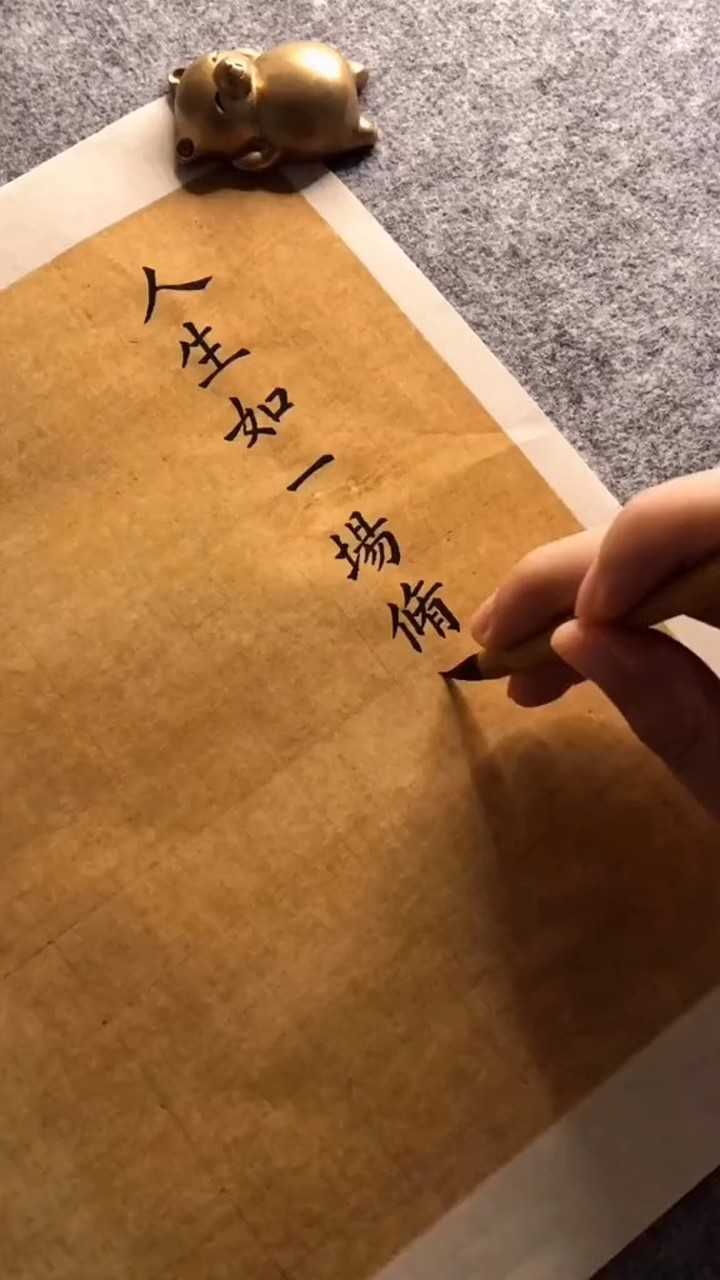 人生如一場脩